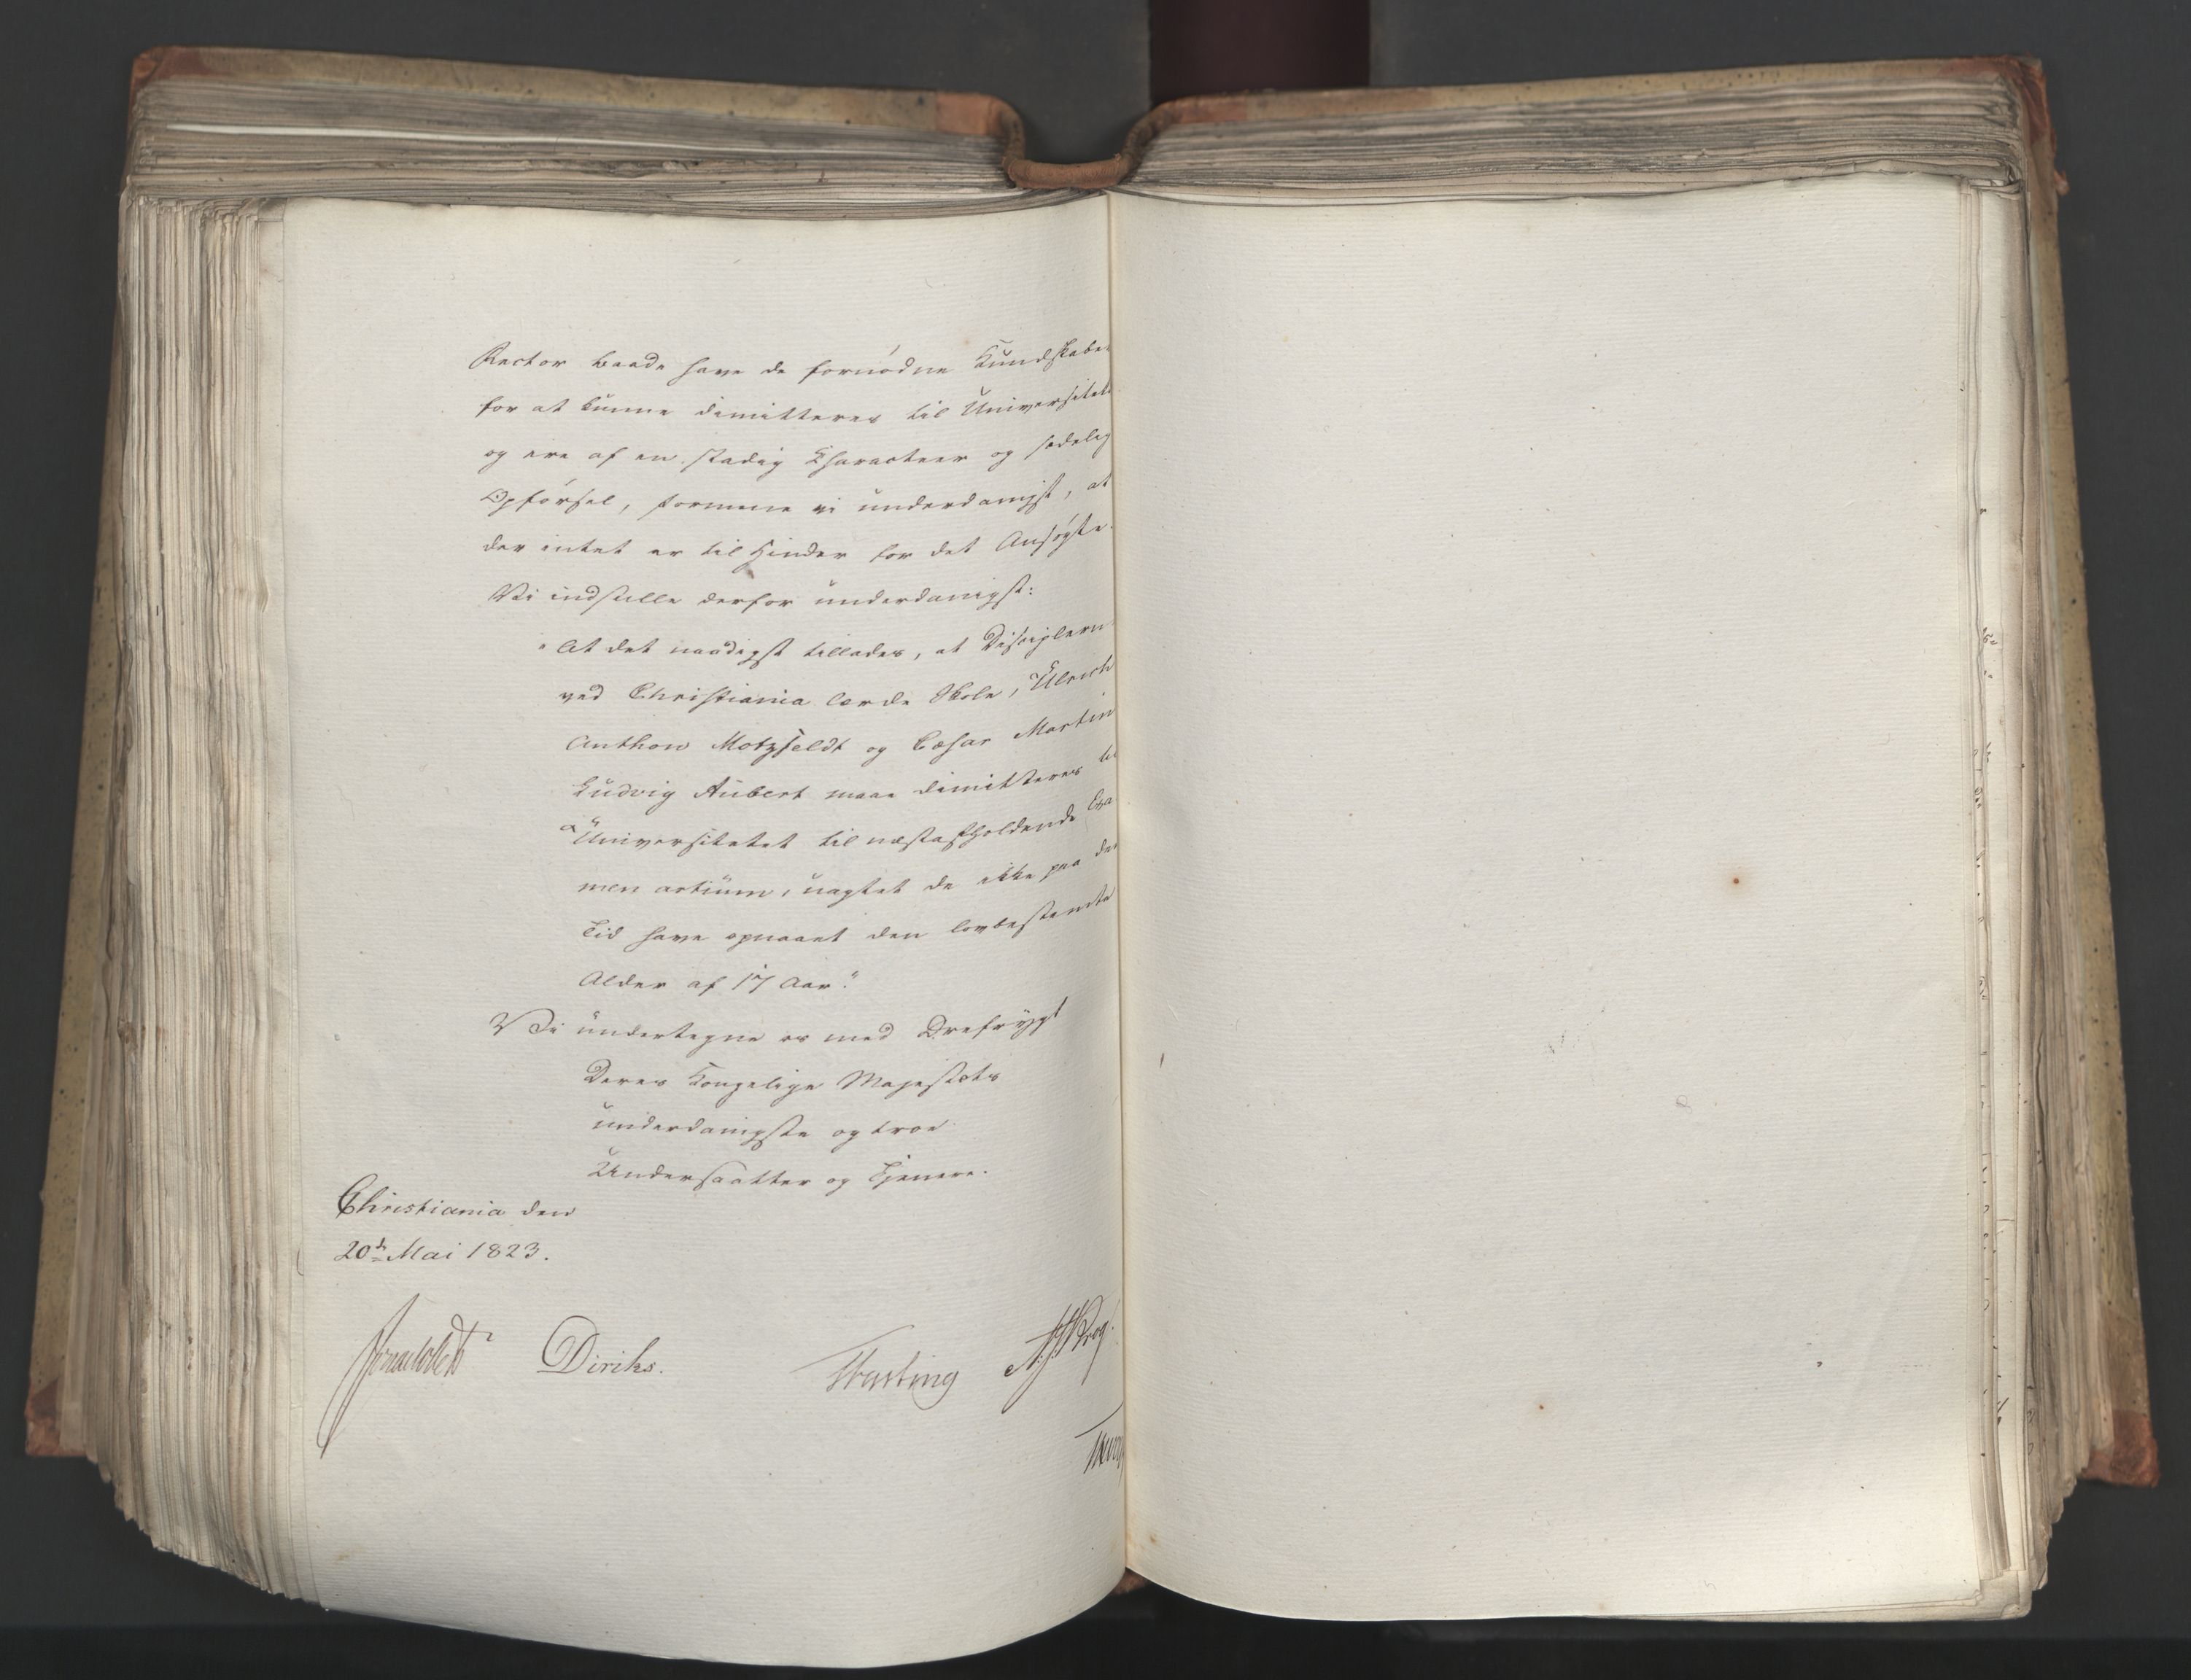 Rector baade have de fornødne Kundskaber
for at kunne dimitteres til Universitetet
og ere af en stadig Characteer og sædelig
Opførsel, formene vi underdanigst, at
der intet er til Hinder for det Ansøgte.
Vi indstille derfor underdanigst:
"At det naadigst tillades, at Disciplerne
ved Christiania lærde Skole, Ulrich
Anthon Motzfeldt og Cæsar Martin
Ludvig Aubert maae dimitteres til
Universitetet til næstafholdende Exa
men artium, uagtet de ikke paa den
Tid have opnaaet den lovbestemte
Alder af 17 Aar."
Vi undertegne os med Ærefrygt
Deres Kongelige Majestæts
underdanigste og troe
Undersaatter og Tjenere.
Christiania den
20d Mai 1823.
Diriks.
Fasting